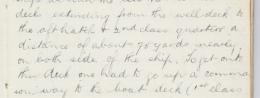 deck extending from the well-deck
to the aft hatch & 2nd class quarters a
distance of about 70 yards nearly,
on both side of the ship. To get onto
this deck one had to go up a common
way to the boat deck (1st class